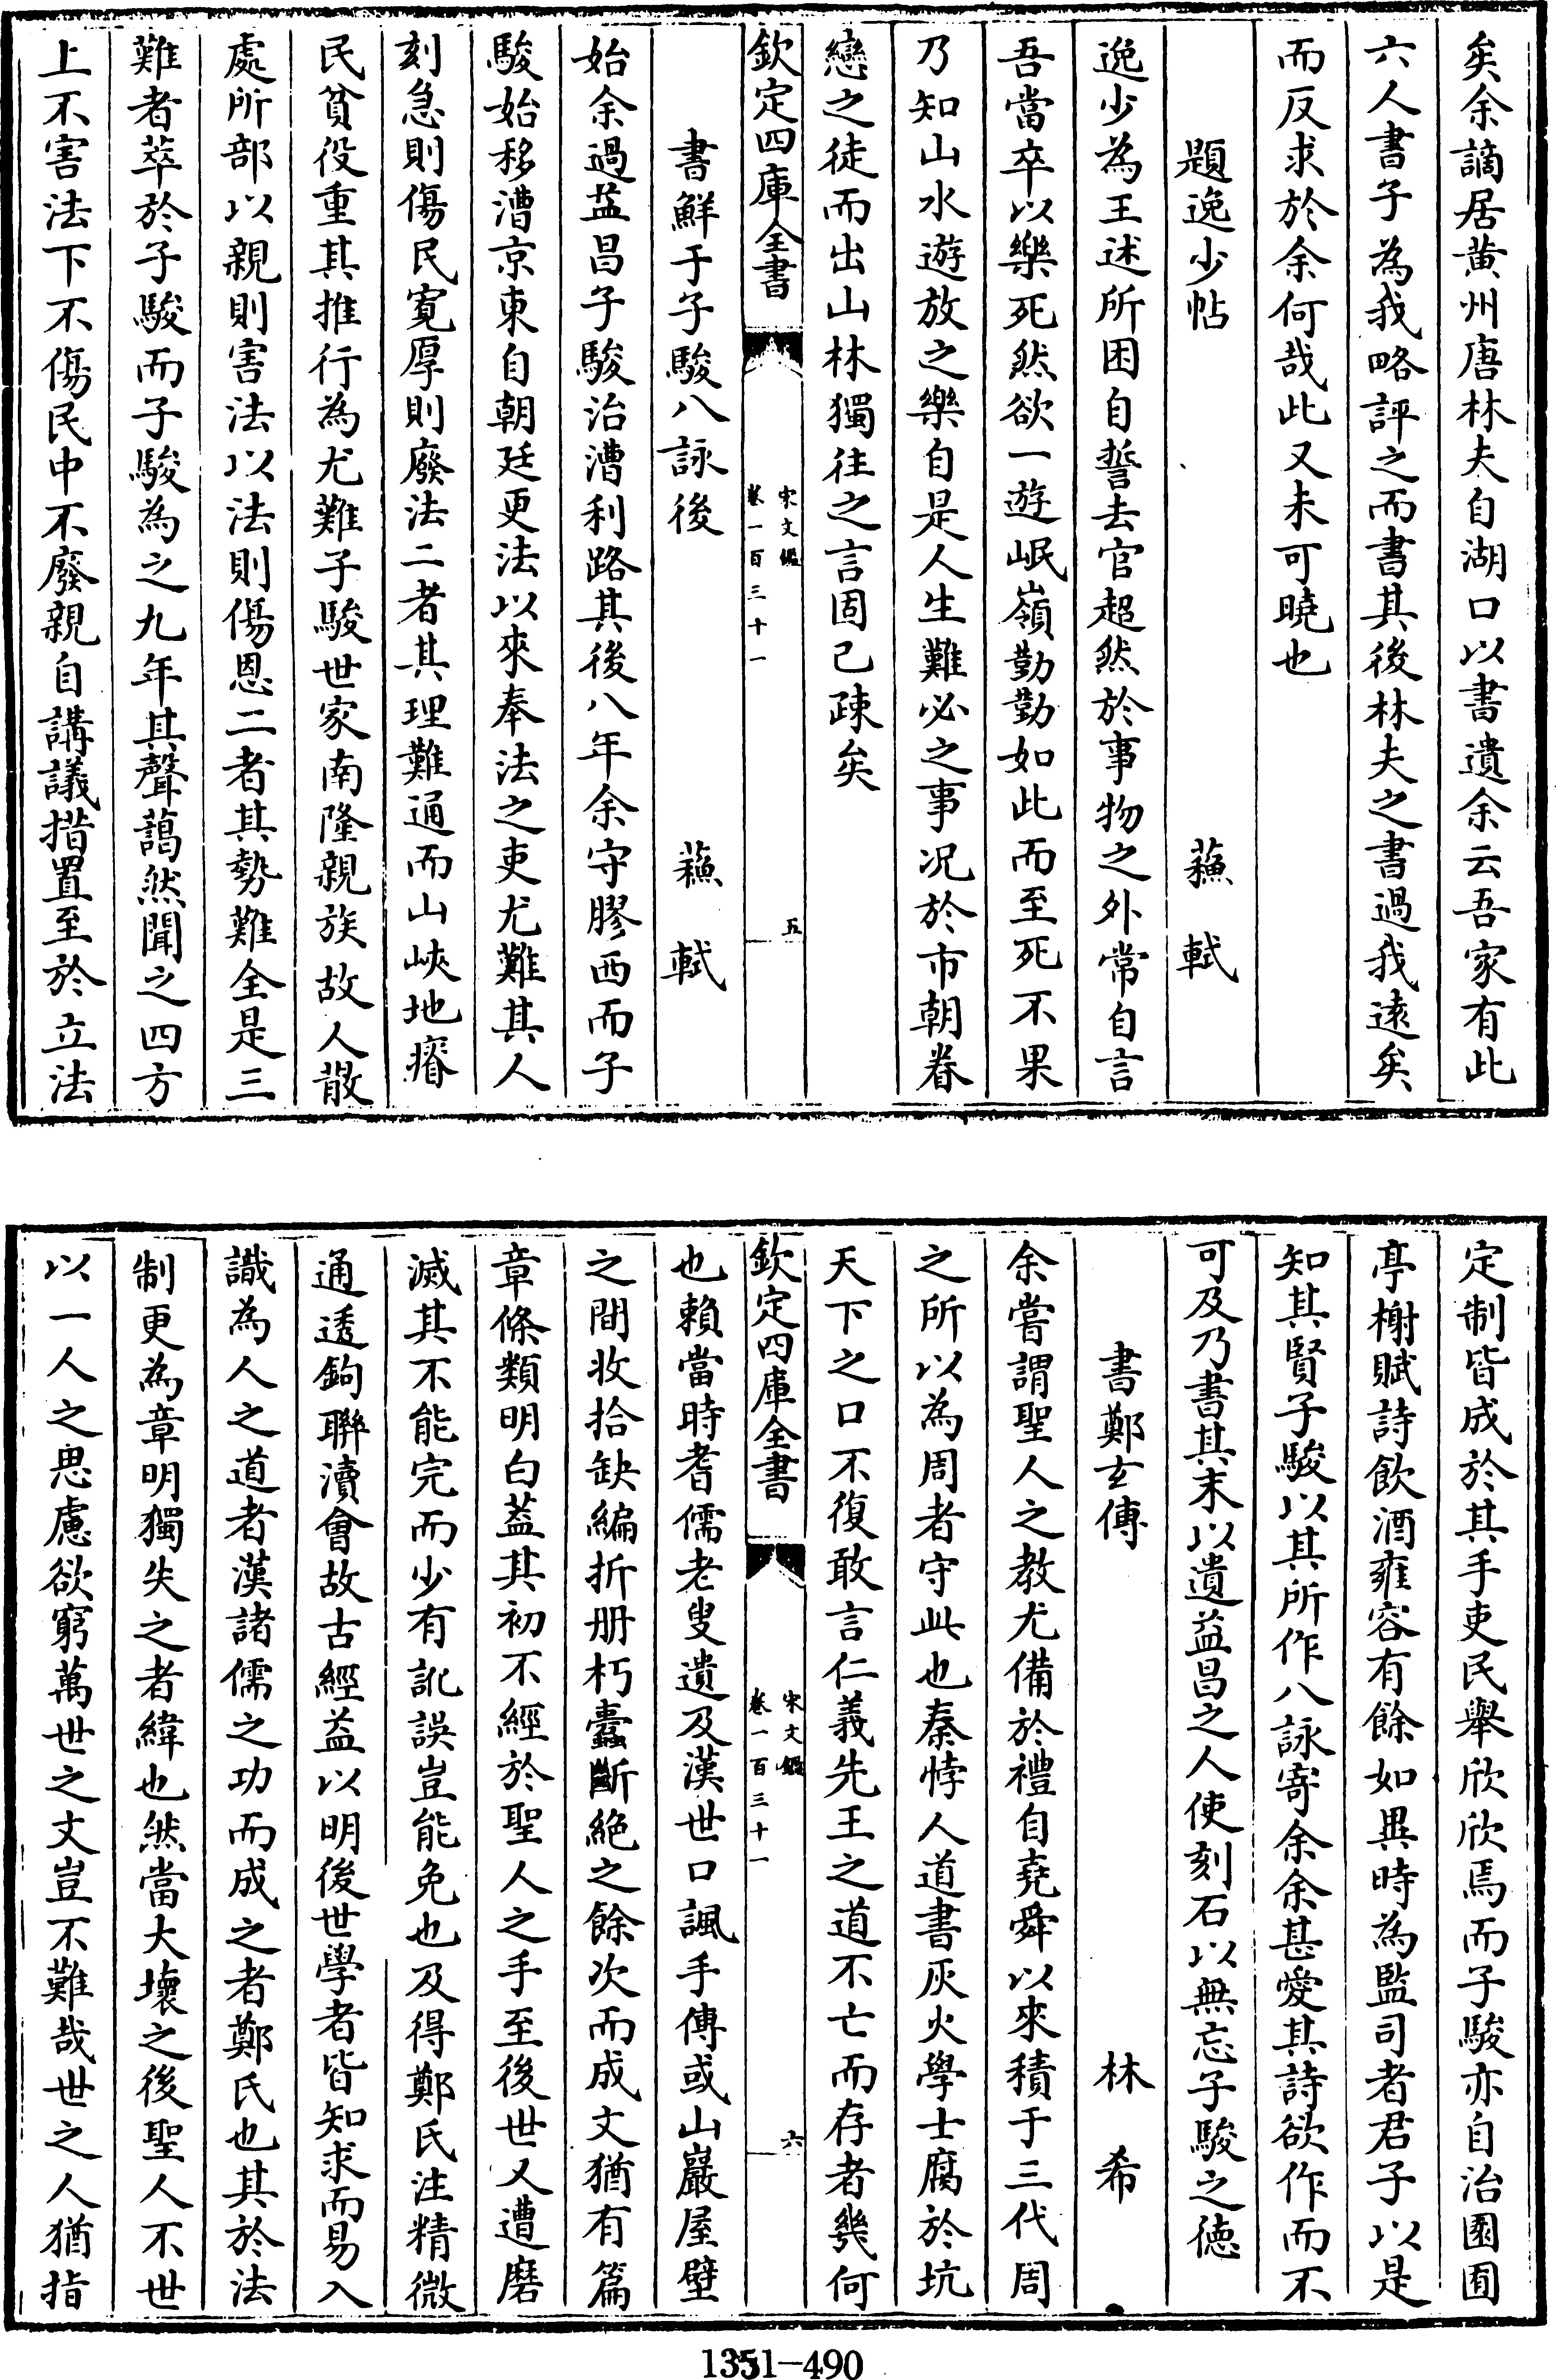 矣余謫居黄州唐林夫自湖口以書遺余云吾家有此
六人書子為我略評之而書其後林夫之書過我逺矣
而反求於余何哉此又未可曉也
題逸少帖　蘓軾
逸少為王述所困自誓去官超然於事物之外常自言
吾當卒以樂死然欲一遊岷嶺勤勤如此而至死不果
乃知山水遊放之樂自是人生難必之事况於市朝眷
戀之徒而出山林獨往之言固已疎矣
欽定四庫全書　宋文鑑　卷一百三十一　五
書鮮于子駿八詠後　蘓軾
始余過益昌子駿治漕利路其後八年余守膠西而子
駿始移漕京東自朝廷更法以來奉法之吏尤難其人
刻急則傷民寛厚則廢法二者其理難通而山峽地瘠
民貧役重其推行為尤難子駿世家南隆親族故人散
處所部以親則害法以法則傷恩二者其勢難全是三
難者萃於子駿而子駿為之九年其聲藹然聞之四方
上不害法下不傷民中不廢親自講議措置至於立法
定制皆成於其手吏民舉欣欣焉而子駿亦自治園囿
亭榭賦詩飲酒雍容有餘如異時為監司者君子以是
知其賢子駿以其所作八詠寄余余甚愛其詩欲作而不
可及乃書其末以遺益昌之人使刻石以無忘子駿之徳
書鄭玄傳　林希
余嘗謂聖人之教尤備於禮自堯舜以來積于三代周
之所以為周者守此也秦悖人道書灰火學士腐於坑
天下之口不復敢言仁義先王之道不亡而存者幾何
欽定四庫全書　宋文鑑　卷一百三十一　六
也賴當時耆儒老叟遺及漢世口諷手傳或山巖屋壁
之間收拾缺編折册朽蠧斷絶之餘次而成文猶有篇
章條類明白葢其初不經於聖人之手至後世又遭磨
滅其不能完而少有訛誤豈能免也及得鄭氏注精微
通透鉤聯瀆會故古經益以明後世學者皆知求而易入
識為人之道者漢諸儒之功而成之者鄭氏也其於法
制更為章明獨失之者緯也然當大壊之後聖人不世
以一人之思慮欲窮萬世之文豈不難哉世之人猶指
1351-490